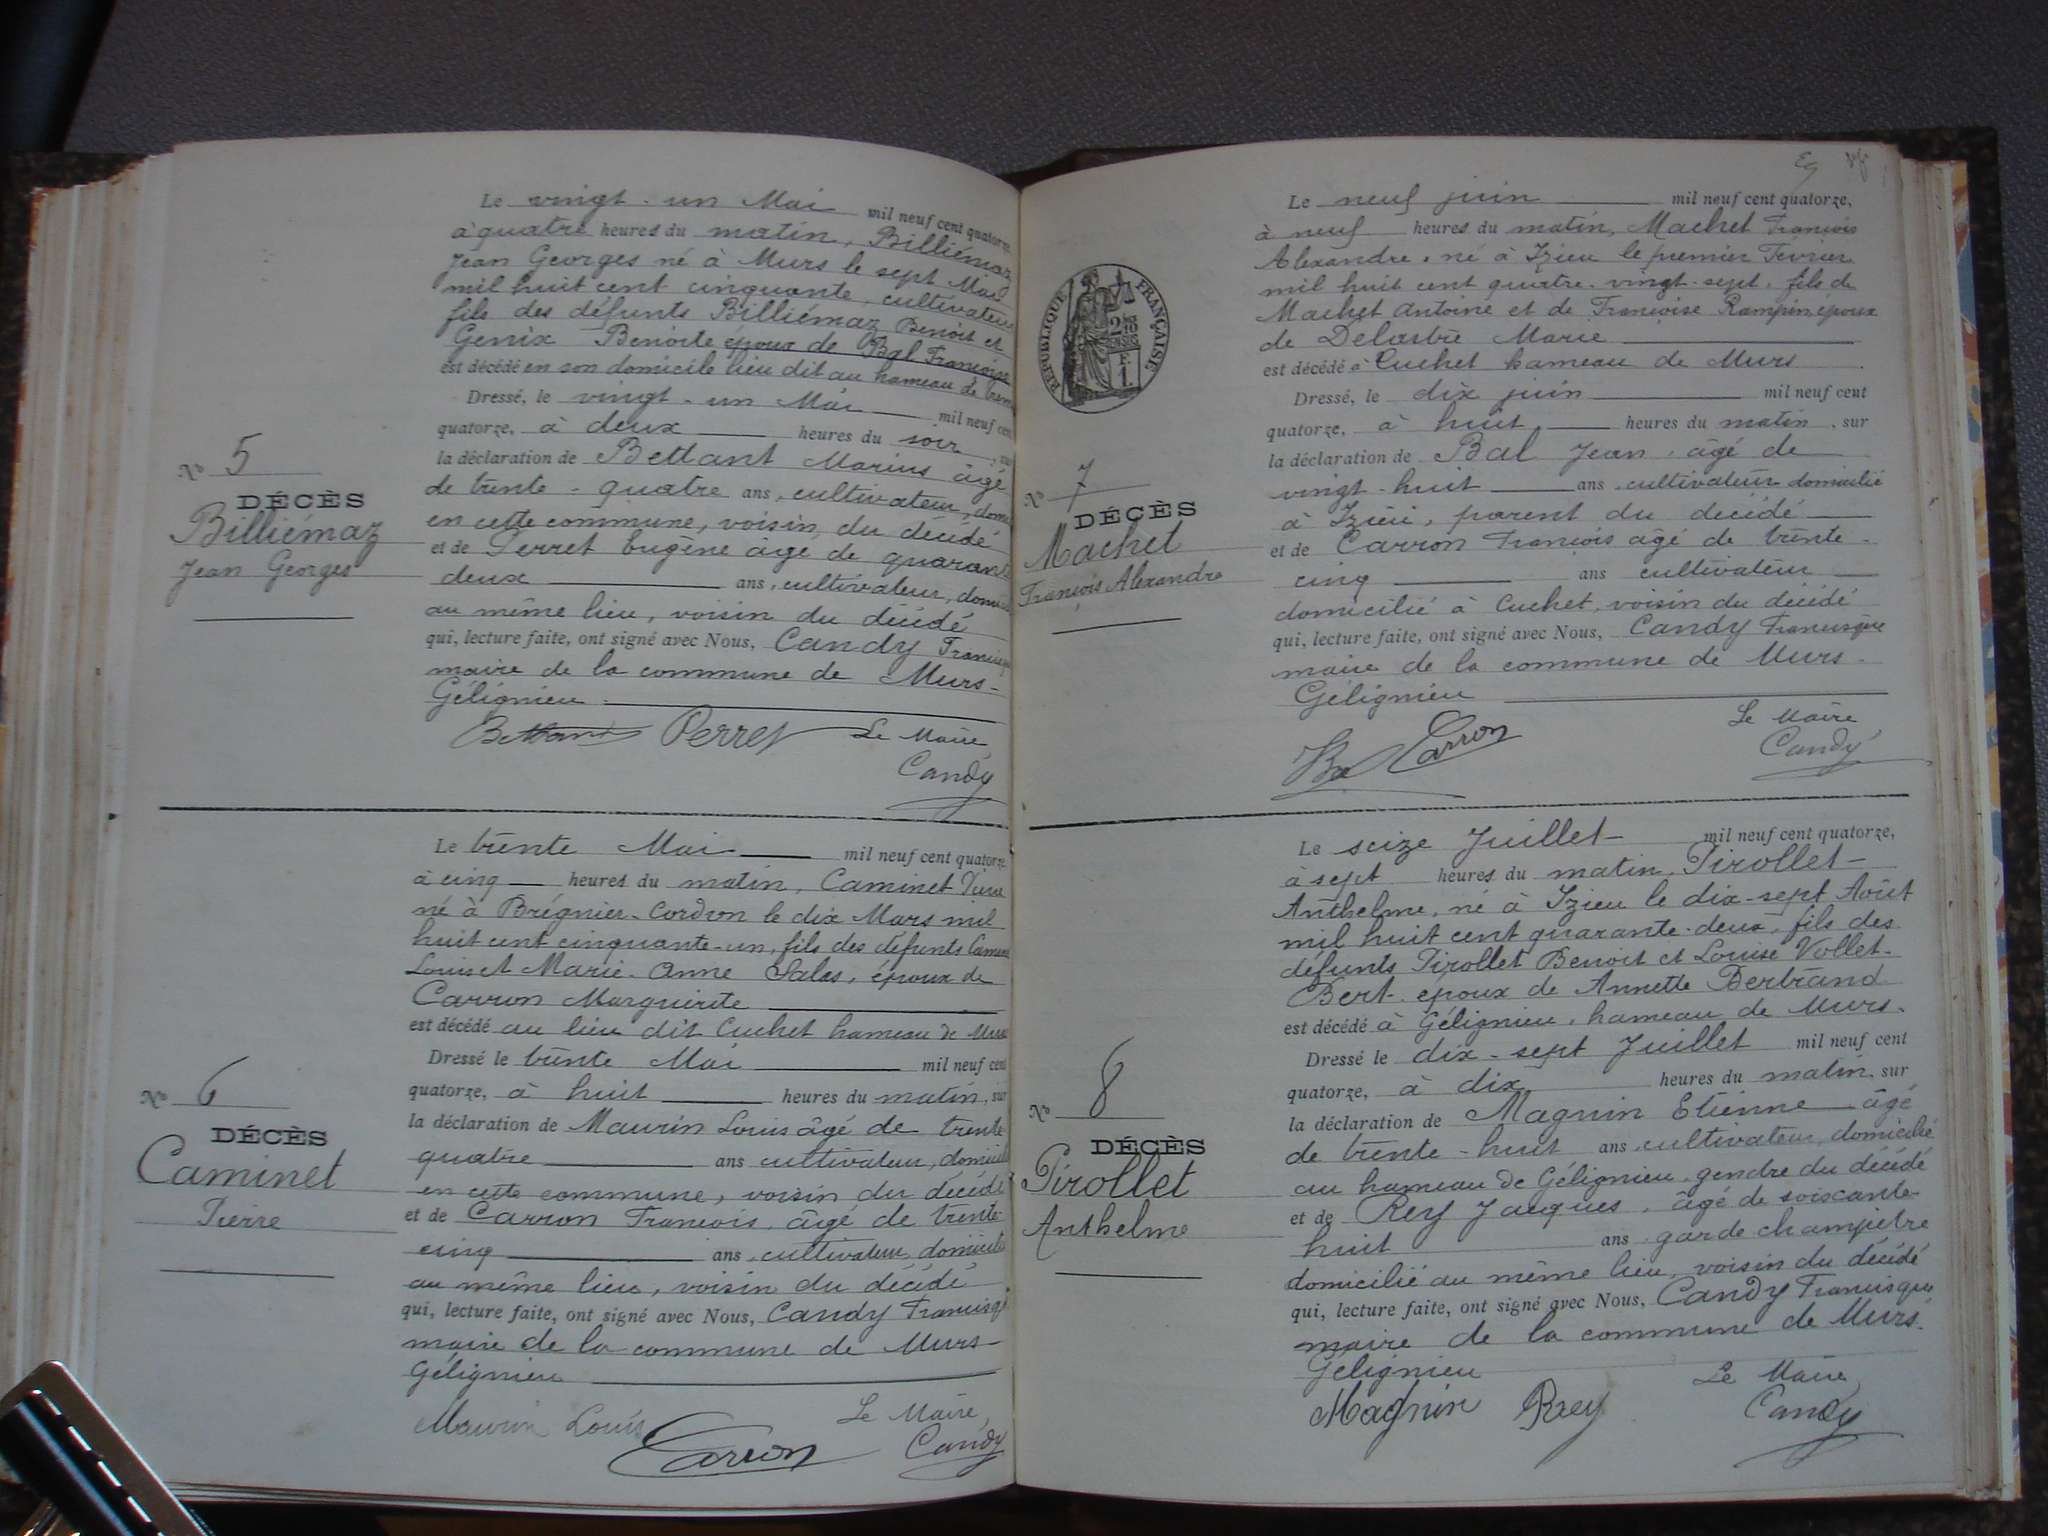 Le vingt-un Mai mil neuf cent quatorze,
à quatre heures du matin, Billiémaz
Jean Georges né à Murs le sept Mai
mil huit cent cinquante, cultivateur
fils des défunts Billiémaz Benoit et
Genix Benoite époux de Bal Françoise
est décédé en son domicile lieu dit au hameau de
Dressé, le vingt-un Mai mil neuf cent
quatorze, à deux heures du soir, sur
la déclaration de Bettant Marius âgé
de trente-quatre ans, cultivateur, domi
en cette commune, voisin du décédé
et de Perret Eugène âgé de quarante
deux ans, cultivateur, domi
au même lieu, voisin du décédé
qui, lecture faite, ont signé avec Nous, Candy Francisque
maire de la commune de Murs-
Gélignieu
Bettant Perret Le Maire
Candy
No 5
DÉCÈS
Billiémaz
Jean Georges
Le trente Mai mil neuf cent quatorze,
à cinq heures du matin, Caminet Pierre
né à Brégnier-Cordon le dix Mars mil
huit cent cinquante-un, fils des défunts Caminet
Louis et Marie-Anne Salas, époux de
Carron Marguerite
est décédé au lieu dit Cuchet hameau de Murs
Dressé le trente Mai mil neuf cent
quatorze, à huit heures du matin, sur
la déclaration de Maurin Louis âgé de trente
quatre ans cultivateur, domicilié
en cette commune, voisin du décédé
et de Carron François, âgé de trente-
cinq ans, cultivateur, domicilié
au même lieu, voisin du décédé
qui, lecture faite, ont signé avec Nous, Candy Francisque
maire de la commune de Murs-
Gélignieu
Maurin Louis Le Maire,
Carron Candy
No 6
DÉCÈS
Caminet
Pierre
Le neuf juin mil neuf cent quatorze,
à neuf heures du matin, Machet François
Alexandre, né à Izieu le premier Février
mil huit cent quatre-vingt-sept, fils de
Machet Antoine et de Françoise Rampin, époux
de Delastre Marie
est décédé à Cuchet hameau de Murs
Dressé, le dix juin mil neuf cent
quatorze, à huit heures du matin, sur
la déclaration de Bal Jean, âgé de
vingt-huit ans cultivateur domicilié
à Izieu, parent du décédé
et de Carron François âgé de trente-
cinq ans cultivateur
domicilié à Cuchet, voisin du décédé
qui, lecture faite, ont signé avec Nous, Candy Francisque
maire de la commune de Murs-
Gélignieu
Le Maire
Bal Carron Candy
RÉPUBLIQUE FRANÇAISE
No 7
DÉCÈS
Machet
François Alexandre
Le seize Juillet mil neuf cent quatorze,
à sept heures du matin, Pirollet
Anthelme, né à Izieu le dix-sept Août
mil huit cent quarante-deux, fils des
défunts Pirollet Benoit et Louise Vollet-
Bert, époux de Annette Bertrand
est décédé à Gélignieu, hameau de Murs.
Dressé le dix-sept Juillet mil neuf cent
quatorze, à dix heures du matin, sur
la déclaration de Magnin Etienne âgé
de trente-huit ans, cultivateur, domicilié
au hameau de Gélignieu, gendre du décédé
et de Rey Jacques, âgé de soixante-
huit ans garde champêtre
domicilié au même lieu, voisin du décédé
qui, lecture faite, ont signé avec Nous, Candy Francisque
maire de la commune de Murs-
Gélignieu Le Maire
Magnin Rey Candy
No 8
DÉCÈS
Pirollet
Anthelme